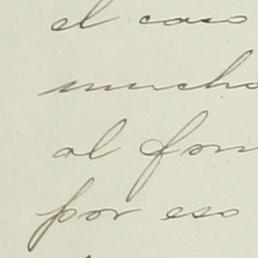 el caso
mucho
al fon
por eso